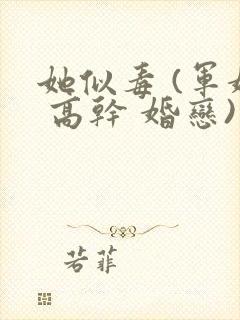 她似毒(軍
高幹 婚戀)
若菲